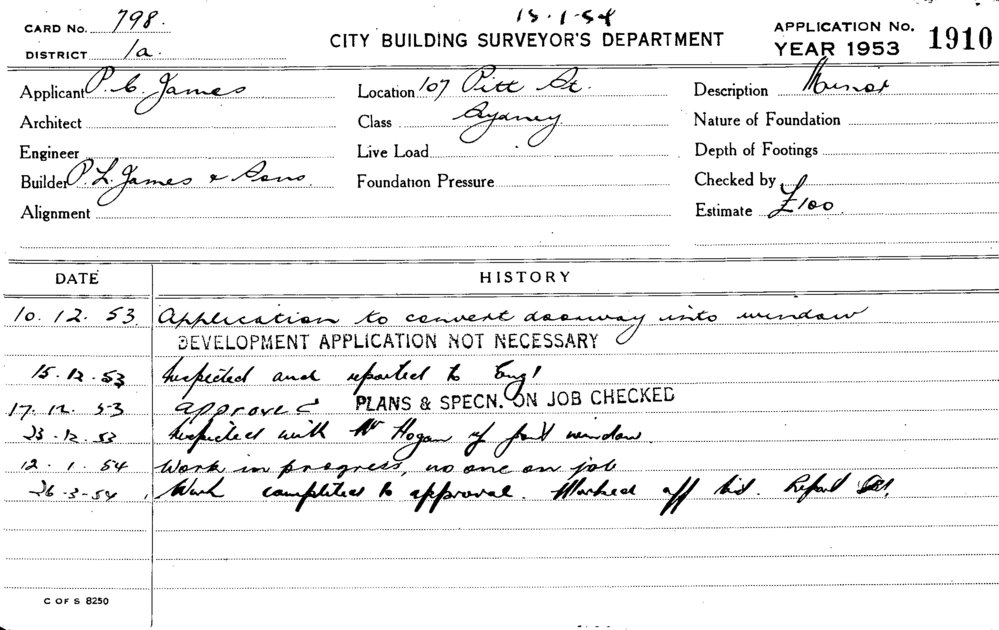 CARD No. 798. 15.1.54 APPLICATION No. 1910
DISTRICT 1a. CITY BUILDING SURVEYOR'S DEPARTMENT YEAR 1953
Applicant P. C. James Location 107 Pitt St. Description Minor
Architect Class Sydney Nature of Foundation
Engineer Live Load Depth of Footings
Builder P. L. James & Sons. Foundation Pressure Checked by
Alignment Estimate £100.
DATE HISTORY
10. 12. 53 Application to convert doorway into window
DEVELOPMENT APPLICATION NOT NECESSARY
15.12.53 Inspected and reported to Eng!
17. 12. 53 approved PLANS & SPECN. ON JOB CHECKED
23.12.53 Inspected with Mr Hogan window.
12. 1. 54 Work in progress, no one on job
26-3-54 Work completed to approval. Marked off Report
C OF S 8250